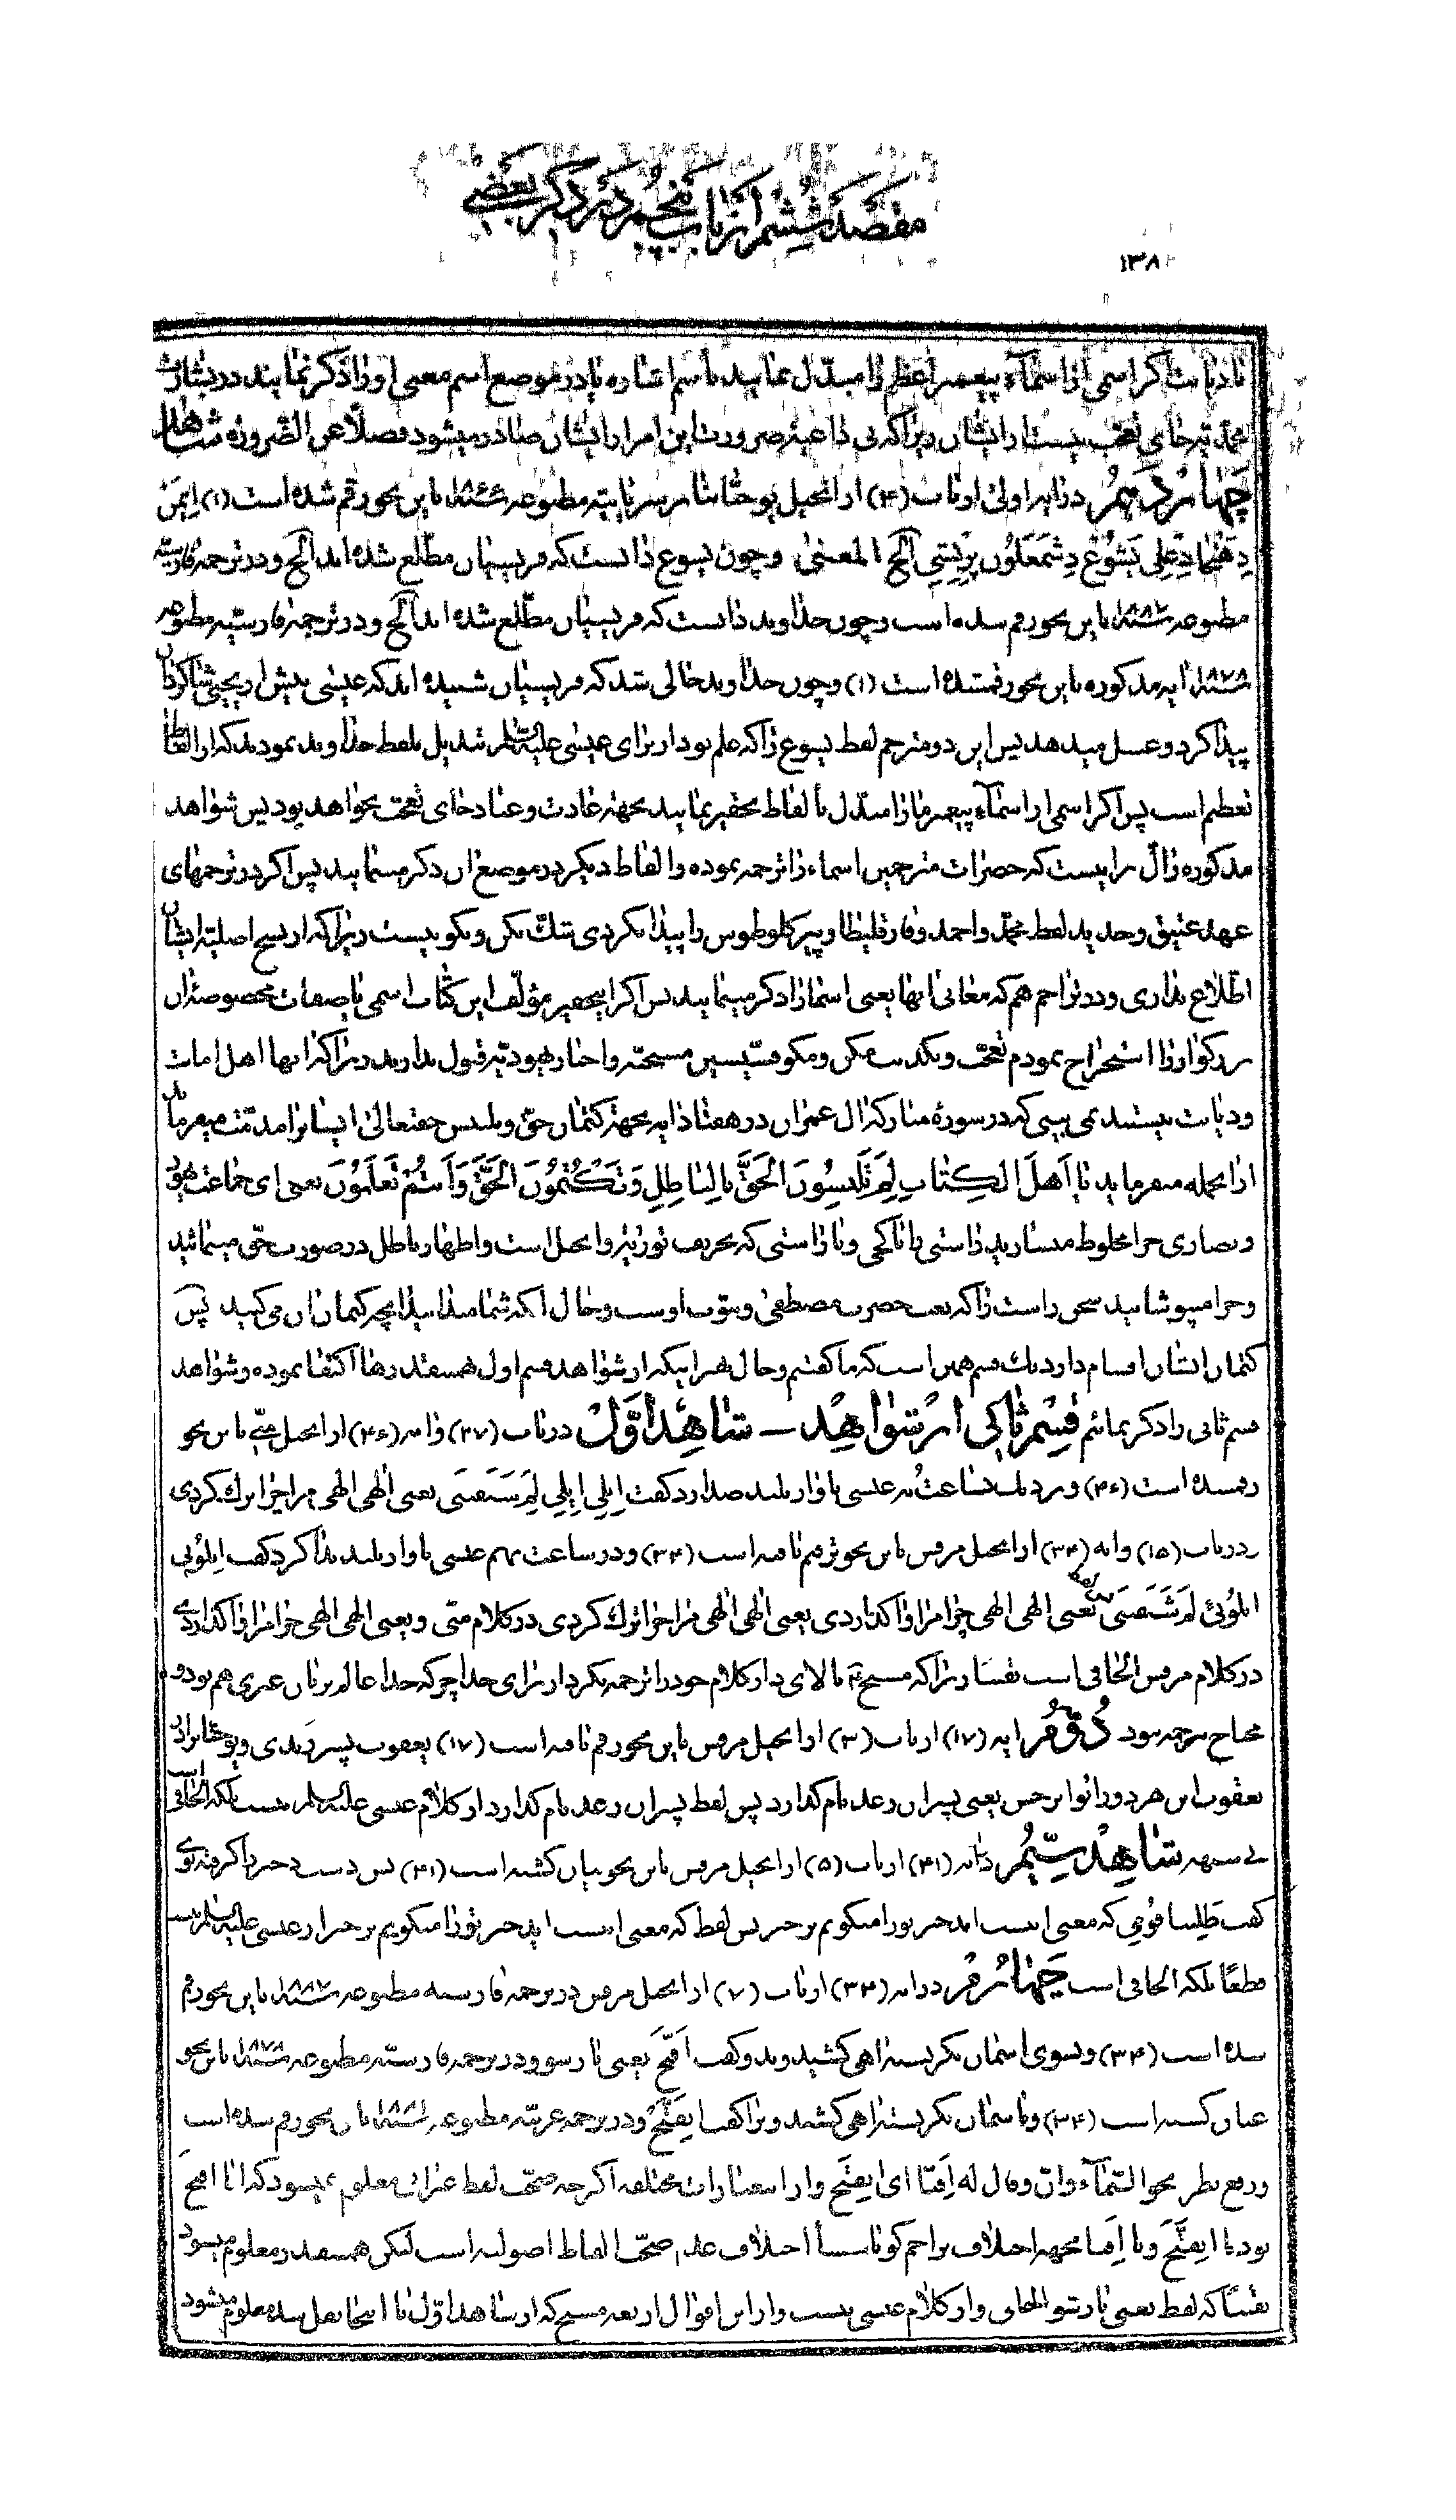 مقصد ششم از باب پنجم در ذکر بعضی
۱۳۸
اگر اسمی از اسماء پیغمبر اعظم را مبدّل نمایند باسم اشاره یا در موضع اسم معنی او را ذکر نمایند در بشارت
محمدیّه جای تعجب نیست از ایشان زیرا که بی داعیه ضرورت این امر از ایشان صادر میشود فضلاً عن الضروره شاهد
چهاردهم در آیه اولی از باب (۴) از انجیل یوحنّا مطبوعه باین نحو رقم شده است (۱)
الخ المعنی و چون یسوع دانست که فریسیان مطّلع شده اند الخ و در ترجمه فارسیّه
مطبوعه باین نحو رقم شده است و چون خداوند دانست که فریسیان مطّلع شده اند الخ و در ترجمه فارسیّه مطبوعه
۱۸۷۸ آیه مذکوره باین نحو رقم شده است (۱) و چون خداوند حالی شد که فریسیان شنیده اند که عیسی بیش از یحیی شاگردان
پیدا کرد و غسل میدهد پس این دو مترجم لفظ یسوع را که علم بود از برای عیسی علیه السلام تبدیل بلفظ خداوند نمودند که از الفاظ
تعظیم است پس اگر اسمی از اسماء پیغمبر ما را مبدّل بالفاظ تحقیر نمایند بجهة عادت و عناد جای تعجب نخواهد بود پس شواهد
مذکوره دالّ براینست که حضرات مترجمین اسماء را ترجمه نموده و الفاظ دیگر در موضع آن ذکر مینمایند پس اگر در ترجمهای
عهد عتیق و جدید لفظ محمّد و احمد و فارقلیطا و پیرکلوطوس را پیدا نکردی شکّ مکن و مگو نیست زیرا که از نسخ اصلیّه ایشان
اطّلاع نداری و در تراجم هم که معانی آنها یعنی اسما را ذکر مینمایند پس اگر این حقیر مؤلّف این کتاب اسمی یا صفات مخصوصه آن
بزرگوار را استخراج نمودم تعجب و مکن و مگو قسّیسین مسیحیّه و احبار یهودیّه قبول ندارند زیرا که آنها اهل امانت
و دیانت نیستند نمی بینی که در سوره مبارکه آل عمران در هفتاد آیه بجهة کتمان حقّ و تلبیس حقتعالی ایشانرا مذمّت میفرماید
از انجمله میفرماید یا اَهلَ الکِتابِ لِمَ تَلبِسُونَ الحَقَّ بِالباطِلِ وَتَکتُمُونَ الحَقَّ وَاَنتُم تَعلَمُونَ یعنی ای جماعت یهود
و نصاری چرا مخلوط میسازید راستی را با کجی و ناراستی که تحریف توریة و انجیل است و اظهار باطل در صورت حقّ مینمائید
و چرا میپوشانید سخن راست را که نعت حضرت مصطفی و نبوّت اوست و حال آنکه شما میدانید آنچه کتمان آن می کنید پس
کتمان ایشان اقسام دارد یک قسم همین است که ما گفتیم و حال هم از شواهد قسم اول همینقدرها اکتفا نموده و شواهد
قسم ثانی را ذکر نمائیم قسم ثانی از شواهد — شاهد اوّل در باب (۲۷) و آیه (۴۶) از انجیل متّی باین نحو
رقمشده است (۴۶) و نزدیک بساعت نه عیسی باواز بلند صدا زد گفت اِیلِی اِیلِی لِمَ یعنی الهی الهی مرا چرا ترک کردی
و در باب (۱۵) و آیه (۳۴) از انجیل مرقس باین نحو ترقیم یافته است (۳۴) و در ساعت نهم عیسی باواز بلند ندا کرد گفت ایلوئی
ایلوئی لم یعنی الهی الهی چرا مرا واگذاردی یعنی الهی الهی مرا چرا ترک کردی در کلام متّی و یعنی الهی الهی چرا مرا واگذاردی
در کلام مرقس الحاقی است یقیناً زیرا که مسیح بالای دار کلام خود را ترجمه نکرد از برای خدا چرا که خدا عالم بزبان عبری هم بود و
محتاج بترجمه نبود دوّم آیه (۱۷) از باب (۳) از انجیل مرقس باین نحو رقم یافته است (۱۷) یعقوب پسر زبدی و یوحنّا برادر
یعقوب این هر دو را بوانرجس یعنی پسران رعد نام گذارد پس لفظ پسران رعد نام گذارد از کلام عیسی علیه السلام نیست بلکه الحاقی است
شاهد سیّم در آیه (۴۱) از باب (۵) از انجیل مرقس باین نحو بیان گشته است (۴۱) پس دست دختر را گرفته بوی
گفت طَلِیتا قُومِی که معنی اینست ایدختر تو را میگویم برخیز پس لفظ که معنی اینست ایدختر تو را میگویم برخیز از عیسی علیه السلام نیست
قطعاً بلکه الحاقی است چهارم در آیه (۳۴) از باب (۷) از انجیل مرقس در ترجمه فارسیّه مطبوعه باین نحو رقم
شده است (۳۴) و بسوی آسمان نگریسته آهی کشید و بدو گفت اَفَتَح یعنی باز شو و در ترجمه فارسیّه مطبوعه ۱۸۷۸ باین نحو
عیان گشته است (۳۴) و باسمان نگریسته آهی کشید و برا گفت اِیفَتَح و در ترجمه عربیّه مطبوعه باین نحو رقم شده است
ورفع نظره نحو السّمآء وانّ وقال له اِفَّتا ای اِیفتَح و از این عبارات مختلفه اگر چه صحّت لفظ عبرانی معلوم نمیشود که آیا افتح
بود یا ایفتّح و یا اِفّتا بجهة اختلاف تراجم عدم صحّت الفاظ اصولیه است لیکن همینقدر معلوم میشود
یقیناً که لفظ یعنی باز شو الحاقی و از کلام عیسی نیست و از این اقوال اربعه مسیح که از شاهد اوّل تا اینجا نقل شد معلوم میشود